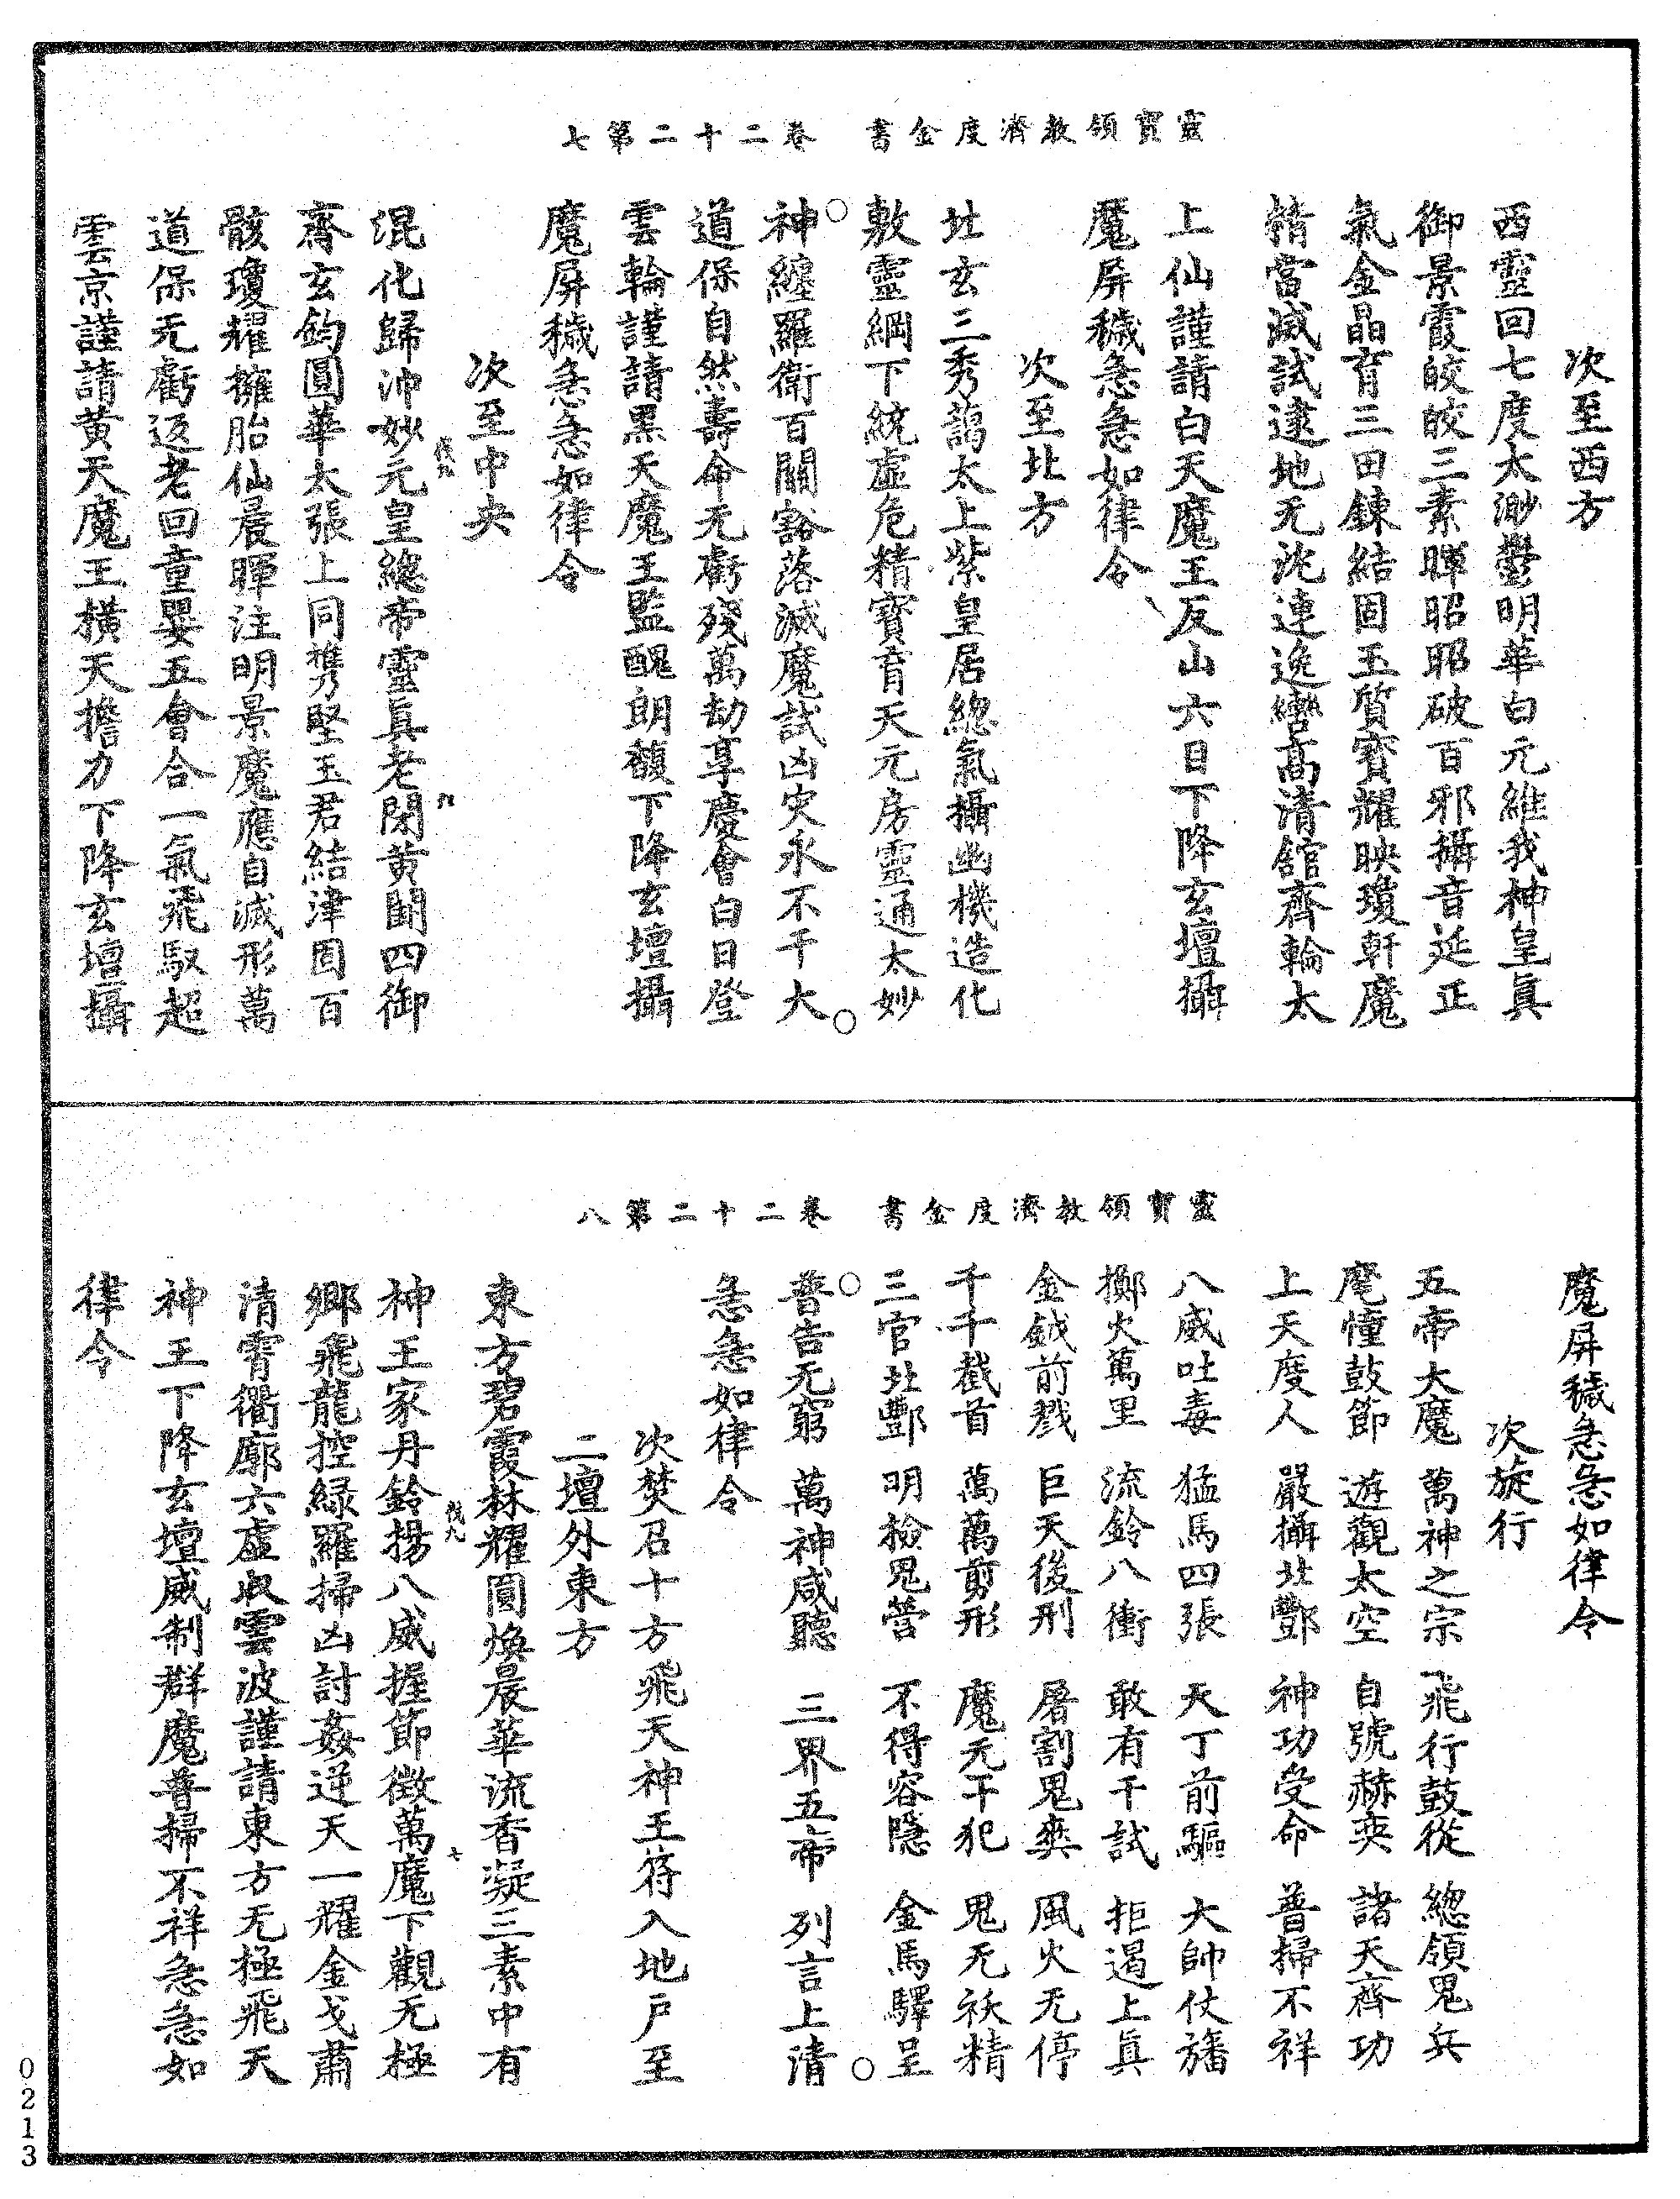 靈寶領教濟度金書　卷二十二第七
次至西方
西靈回七度太渺鬱明華白元維我神皇眞
御景霞皎皎三素暉昭昭破百邪攝音延正
氣金晶育三田鍊結固玉質寶耀映瓊軒魔
精當滅試逮地无沈連逸轡高清館齊輪太
上仙謹請白天魔王反山六日下降玄壇攝
魔屏穢急急如律令
次至北方
北玄三秀藹太上紫皇居總氣攝幽機造化
敷靈綱下統虛危精寶育天元房靈通太妙
神纏羅衛百關豁落滅魔試凶灾永不干大
道保自然壽命无虧殘萬劫享慶會白日登
雲輪謹請黑天魔王監醜朗馥下降玄壇攝
魔屏穢急急如律令
次至中央
混化歸沖妙元皇總帝靈眞老閉黄闕四御
齊玄鈞圓華太張上同携堅玉君結津固百
骸瓊耀擁胎仙晨暉注明景魔應自滅形萬
道保无虧返老回童嬰五會合一氣飛馭超
雲京謹請黄天魔王橫天擔力下降玄壇攝
靈寶領教濟度金書　卷二十二第八
魔屏穢急急如律令
次旋行
五帝大魔　萬神之宗　飛行鼓從　總領鬼兵
麾幢鼓節　遊觀太空　自號赫奕　諸天齊功
上天度人　嚴攝北酆　神功受命　普掃不祥
八威吐毒　猛馬四張　天丁前驅　大帥仗旛
擲火萬里　流鈴八衝　敢有干試　拒遏上眞
金鉞前戮　巨天後刑　屠割鬼爽　風火无停
千千截首　萬萬剪形　魔无干犯　鬼无祅精
三官北酆　明檢鬼營　不得容隱　金馬驛呈
普告无窮　萬神咸聽　三界五帝　列言上清
急急如律令
次焚召十方飛天神王符入地戶至
二壇外東方
東方碧霞林耀圓煥晨華流香凝三素中有
神王家丹鈴揚八威握節徵萬魔下觀无極
鄉飛龍控緑羅掃凶討姦逆天一耀金戈肅
清霄衢廓六虛收雲波謹請東方无極飛天
神王下降玄壇威制群魔普掃不祥急急如
律令
0213